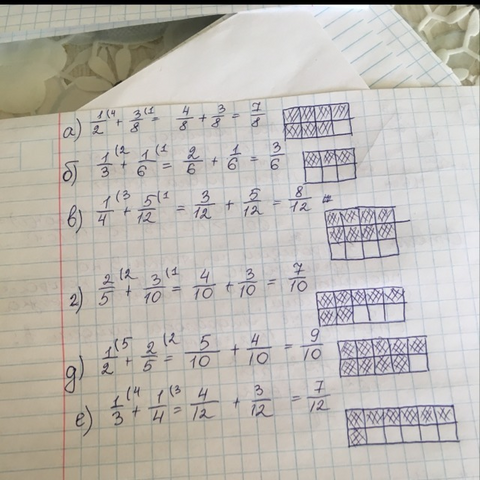 а) 1/2 (4 + 3/8 (1 = 4/8 + 3/8 = 7/8
б) 1/3 (2 + 1/6 (1 = 2/6 + 1/6 = 3/6
в) 1/4 (3 + 5/12 (1 = 3/12 + 5/12 = 8/12
г) 2/5 (2 + 3/10 (1 = 4/10 + 3/10 = 7/10
д) 1/2 (5 + 2/5 (2 = 5/10 + 4/10 = 9/10
е) 1/3 (4 + 1/4 (3 = 4/12 + 3/12 = 7/12